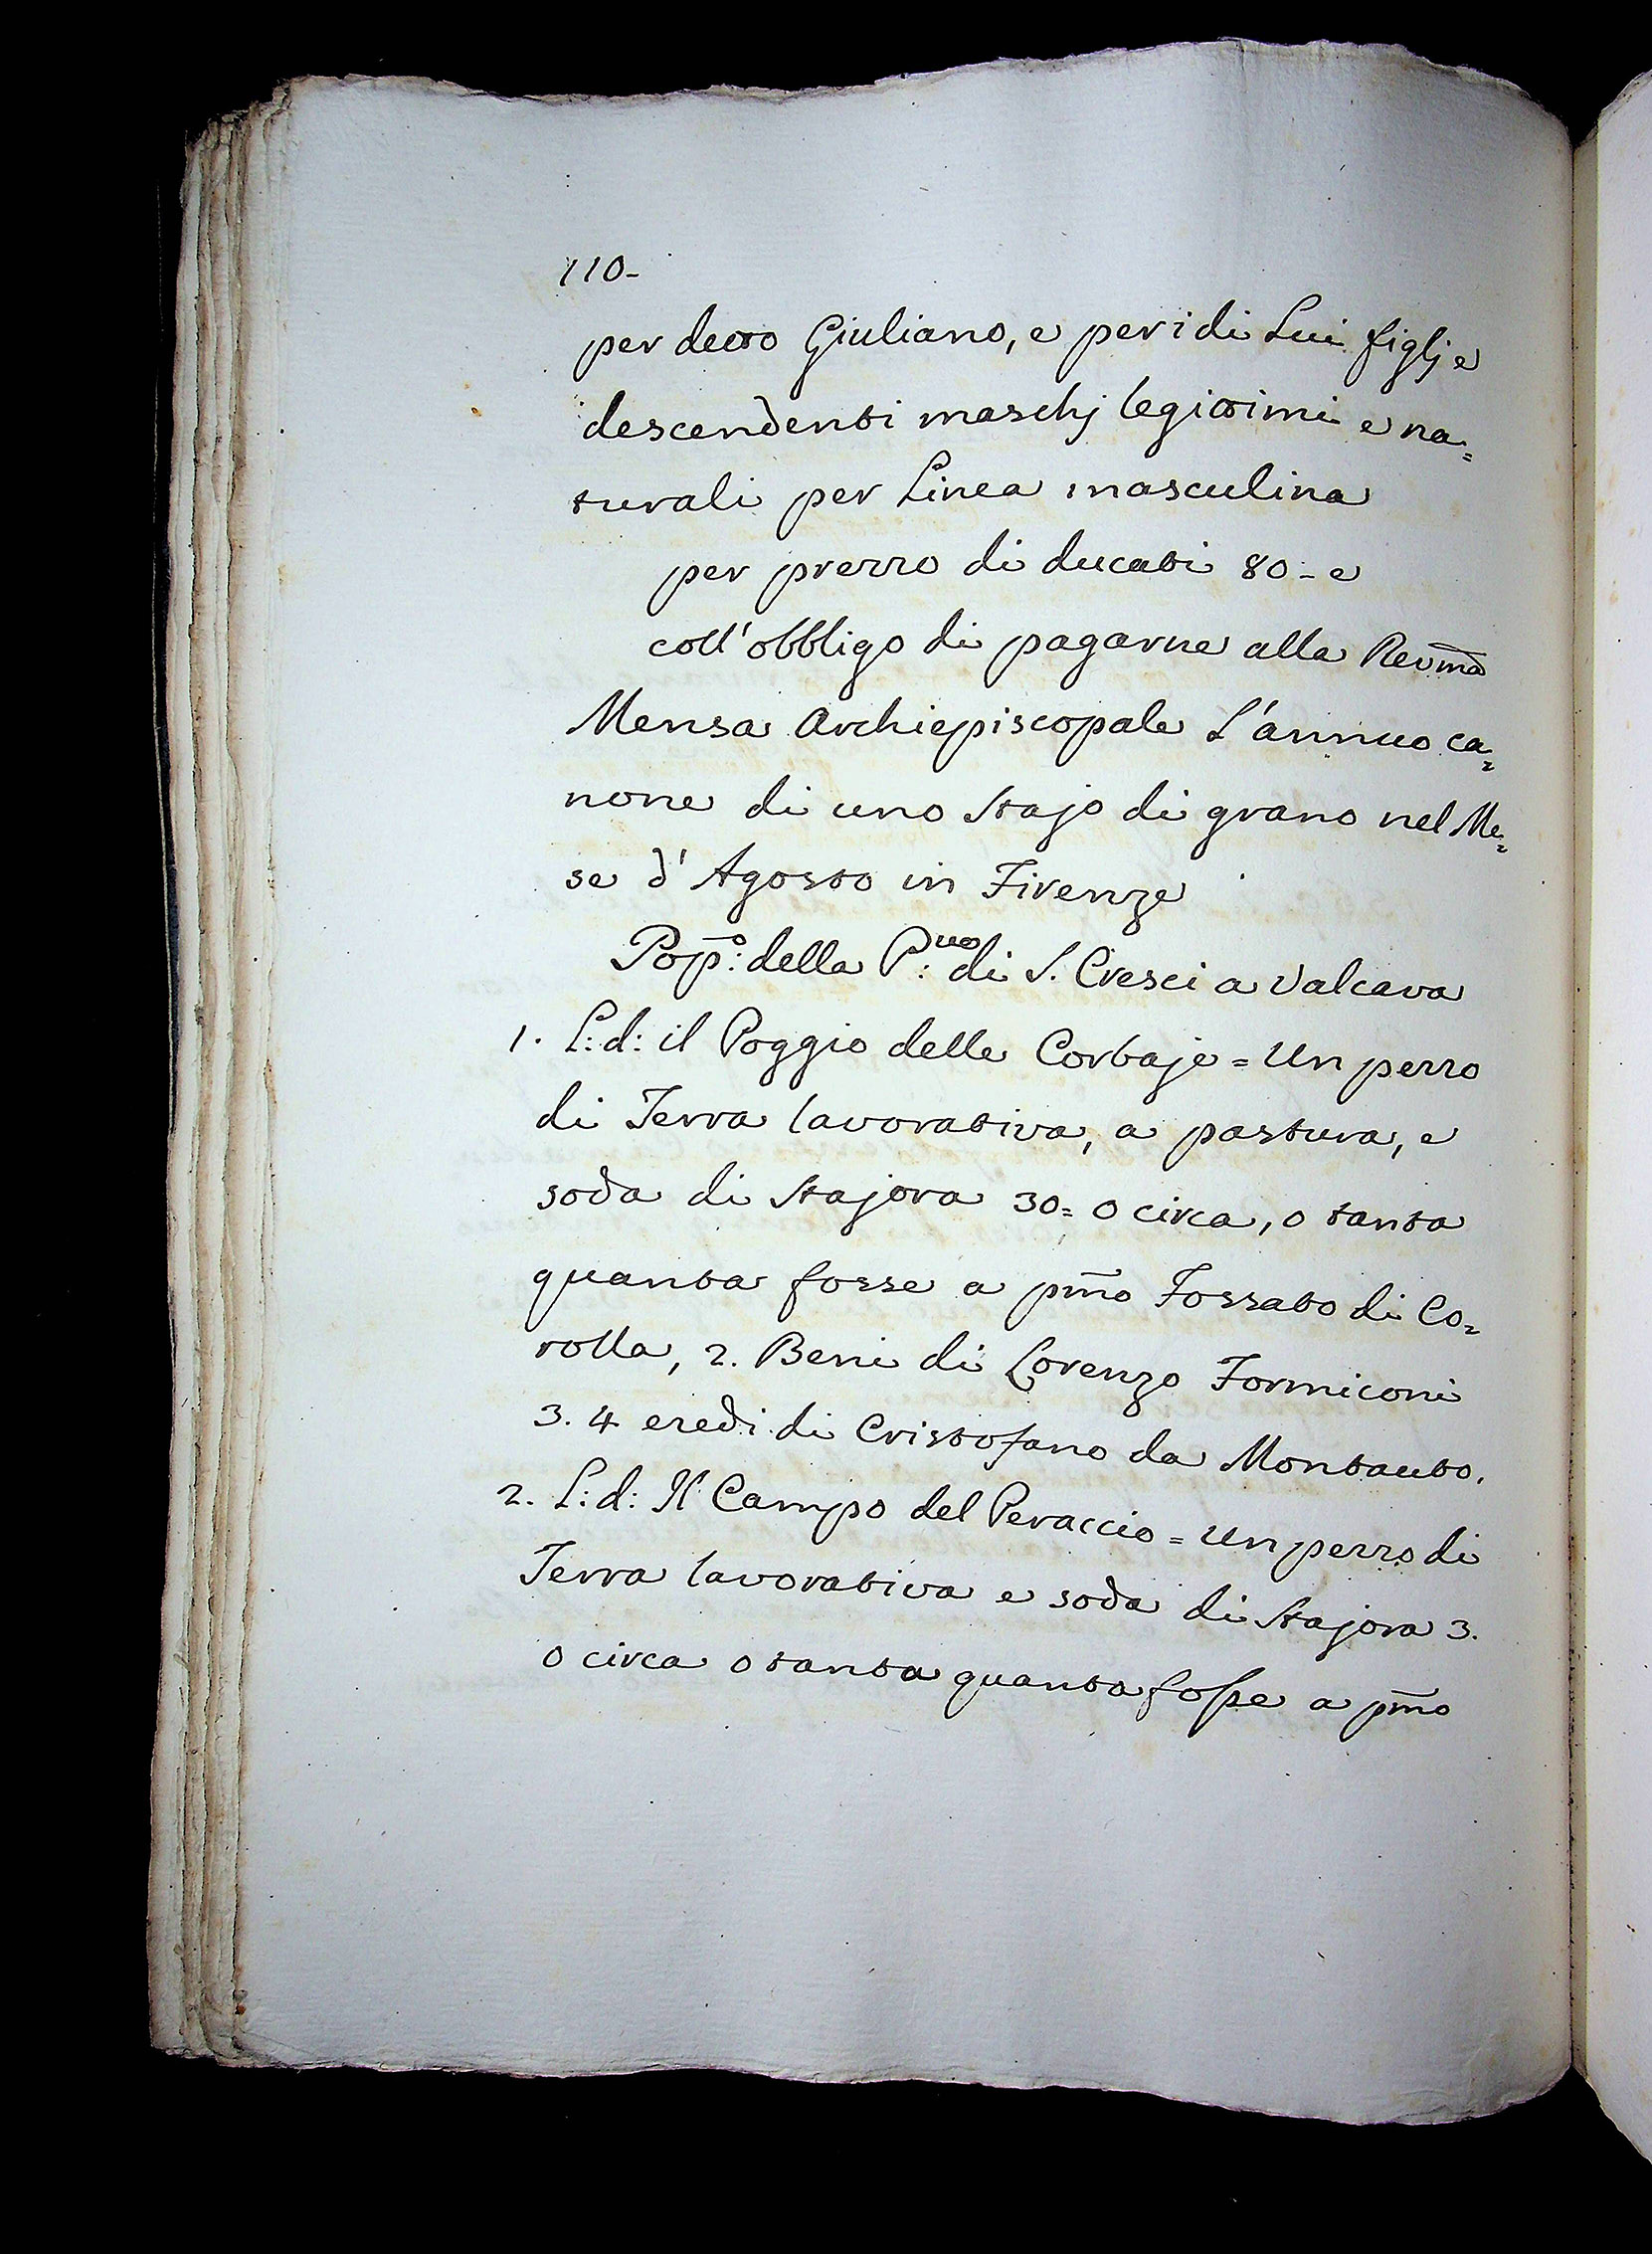 110-
per detto Giuliano, e per i di Lui figlj e
descendenti maschj legittimi e na=
turali per Linea masculina
per prezzo di ducati 80 - e
coll' obbligo di pagarne alla Reuma
Mensa Archiepiscopale L'annuo ca=
none di uno Stajo di grano nel Me=
se d' Agosto in Firenze
Pop:o della P:ve di S. Cresci a Valcava
1. L: d: il Poggio delle Corbaje = Un pezzo
di Terra lavorativa, a pastura, e
soda di Stajora 30= o circa, o tanta
quanta fosse a pmo Fossato di Co=
rolla, 2. Beni di Lorenzo Formiconi
3. 4 eredi di Cristofano da Montauto.
2. L: d: Il Campo del Peraccio = Un pezzo di
Terra lavorativa e soda di Stajora 3.
o circa o tanta quanta fosse a pmo